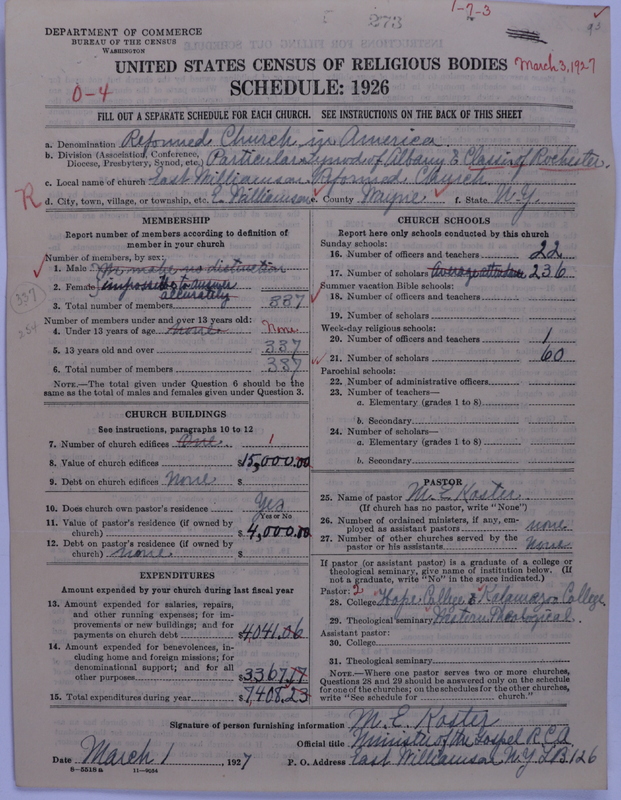 273
1-7-3
DEPARTMENT OF COMMERCE
BUREAU OF THE CENSUS
WASHINGTON
UNITED STATES CENSUS OF RELIGIOUS BODIES March 3, 1927
SCHEDULE: 1926
0-4
FILL OUT A SEPARATE SCHEDULE FOR EACH CHURCH. SEE INSTRUCTIONS ON THE BACK OF THIS SHEET
a. Denomination Reformed Church in America
b. Division (Association, Conference, Diocese, Presbytery, Synod, etc.) Particular Synod of Albany & Classis of Rochester.
c. Local name of church East Williamson Reformed Church
R
d. City, town, village, or township, etc. E. Williamson e. County Wayne f. State N.Y.
MEMBERSHIP
Report number of members according to definition of
member in your church
Number of members, by sex:
1. Male We make no distinction
2. Female impossible to answer
accurately
3. Total number of members 337
337
354
Number of members under and over 13 years old:
4. Under 13 years of age none None
5. 13 years old and over 337
6. Total number of members 337
NOTE.—The total given under Question 6 should be the
same as the total of males and females given under Question 3.
CHURCH BUILDINGS
See instructions, paragraphs 10 to 12
7. Number of church edifices One 1
8. Value of church edifices $15,000.00
9. Debt on church edifices none $
10. Does church own pastor's residence Yes
Yes or No
11. Value of pastor's residence (if owned by
church) $4,000.00
12. Debt on pastor's residence (if owned by
church) none $
EXPENDITURES
Amount expended by your church during last fiscal year
13. Amount expended for salaries, repairs,
and other running expenses; for im-
provements or new buildings; and for
payments on church debt $4041.06
14. Amount expended for benevolences, in-
cluding home and foreign missions; for
denominational support; and for all
other purposes $3367.17
15. Total expenditures during year $7408.23
CHURCH SCHOOLS
Report here only schools conducted by this church
Sunday schools:
16. Number of officers and teachers 22
17. Number of scholars Average attendance 236
Summer vacation Bible schools:
18. Number of officers and teachers
19. Number of scholars
Week-day religious schools:
20. Number of officers and teachers 1
21. Number of scholars 60
Parochial schools:
22. Number of administrative officers
23. Number of teachers—
a. Elementary (grades 1 to 8)
b. Secondary
24. Number of scholars—
a. Elementary (grades 1 to 8)
b. Secondary
PASTOR
25. Name of pastor M. E. Koster
(If church has no pastor, write "None")
26. Number of ordained ministers, if any, em-
ployed as assistant pastors none
27. Number of other churches served by the
pastor or his assistants None
If pastor (or assistant pastor) is a graduate of a college or
theological seminary, give name of institution below. (If
not a graduate, write "No" in the space indicated.)
Pastor: 2
28. College Hope College & Kalamazoo College
29. Theological seminary Western Theological
Assistant pastor:
30. College
31. Theological seminary
NOTE.—Where one pastor serves two or more churches,
Questions 28 and 29 should be answered only on the schedule
for one of the churches; on the schedules for the other churches,
write "See schedule for church."
Signature of person furnishing information M. E. Koster
Official title Minister of the Gospel R.C.A.
Date March 1, 1927 P. O. Address East Williamson N.Y. L.B. 126
8-5518a 11-9084